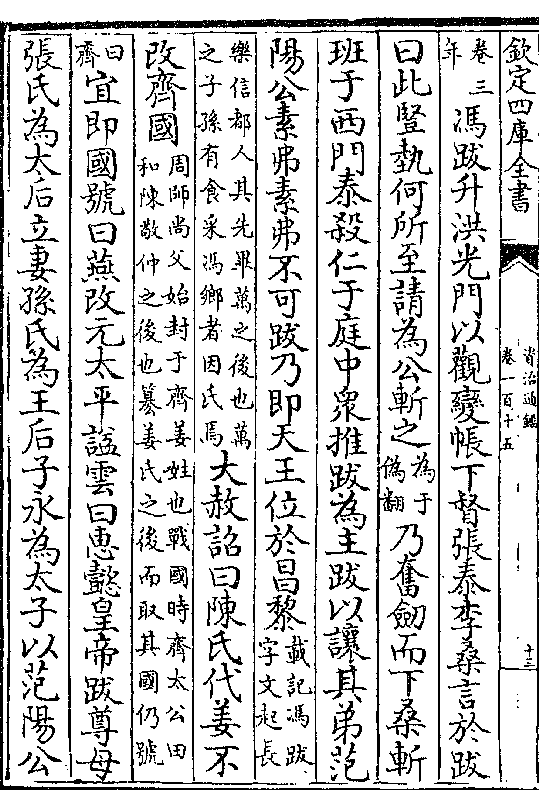 欽定四庫全書
資治通鑑
卷一百十五
十三
卷三
年
馮跋升洪光門以觀變帳下督張泰李桑言於跋
曰此豎埶何所至請為公斬之
為于
偽翻
乃奮劒而下桑斬
班于西門泰殺仁于庭中衆推跋為主跋以讓其弟范
陽公素弗素弗不可跋乃即天王位於昌黎
載記馮跋
字文起長
樂信都人其先畢萬之後也萬
之子孫有食采馮鄉者因氏焉
大赦詔曰陳氏代姜不
改齊國
周師尚父始封于齊姜姓也戰國時齊太公田
和陳敬仲之後也簒姜氏之後而取其國仍號
曰
齊
宜即國號曰燕改元太平諡雲曰惠懿皇帝跋尊母
張氏為太后立妻孫氏為王后子永為太子以范陽公